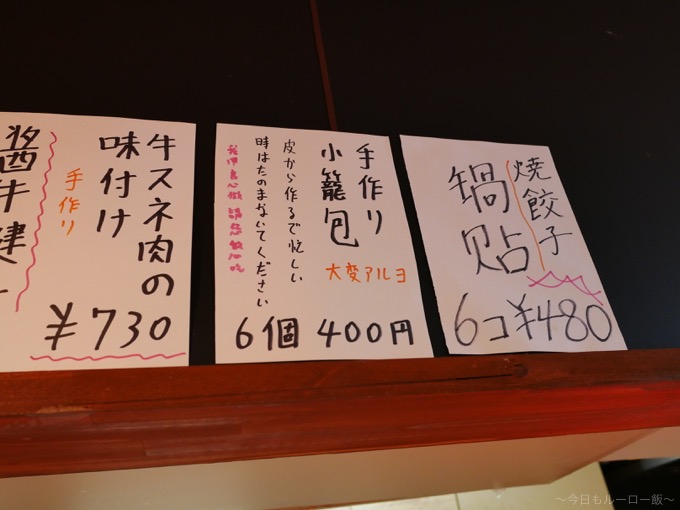 焼餃子
鍋貼
6コ¥480
手作り
小籠包
大変アルヨ
皮から作るで忙しい
時はたのまないてください
6個 400円
牛スネ肉の
味付け
手作り
¥730
〜今日もルーロー飯〜